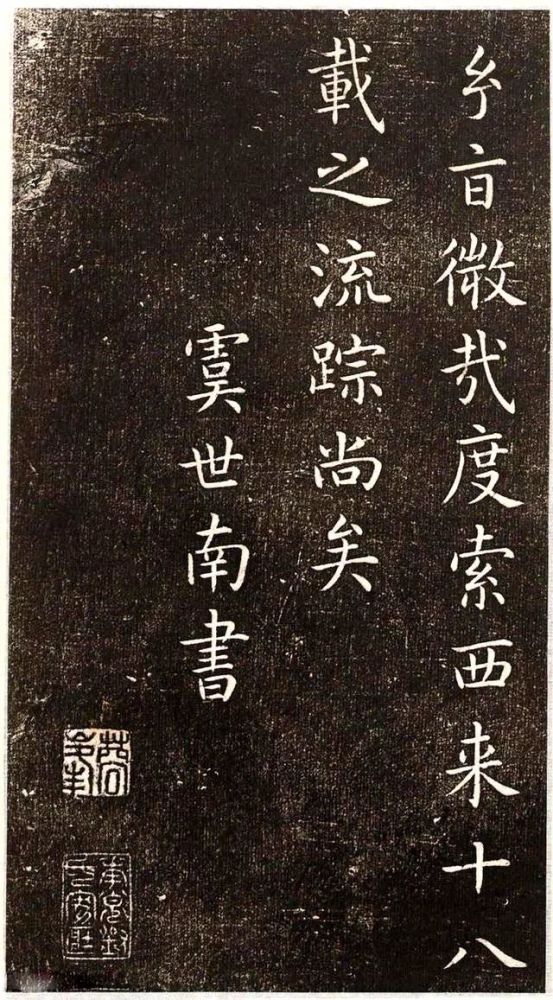 旨微哉度索西来十八
載之流踪尚矣
虞世南書